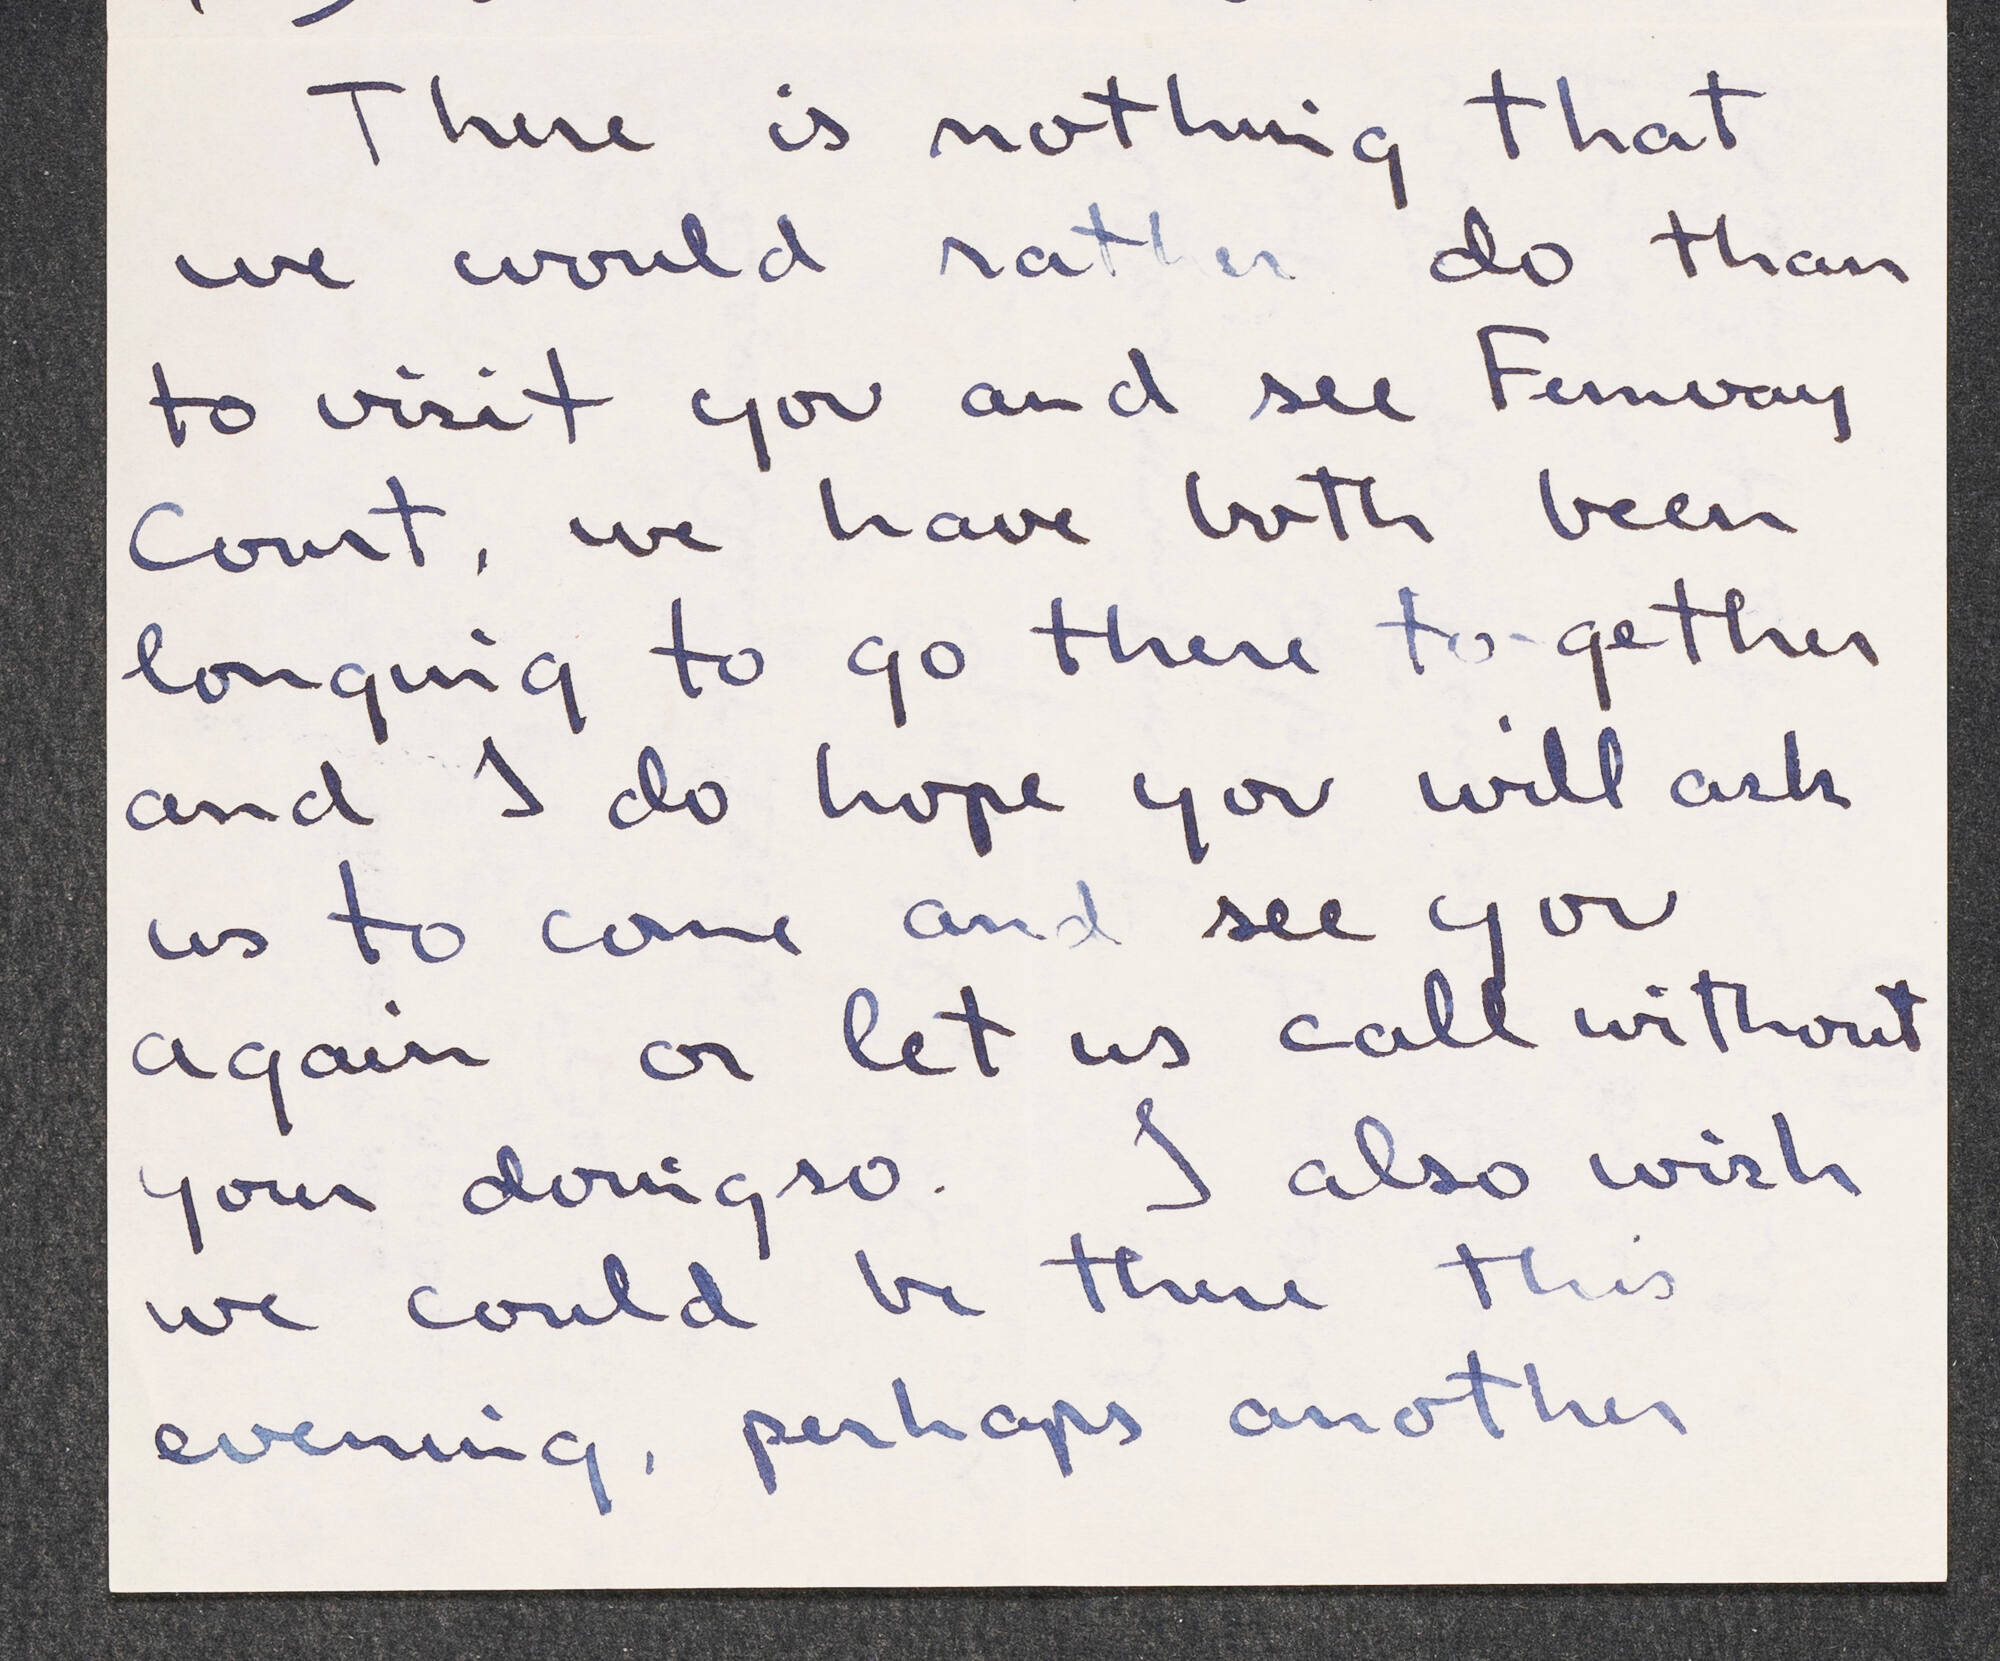 There is nothing that
we would rather do than
to visit you and see Fenway
Court, we have both been
longing to go there to-gether
and I do hope you will ask
us to come and see you
again or let us call without
your doing so. I also wish
we could be there this
evening, perhaps another